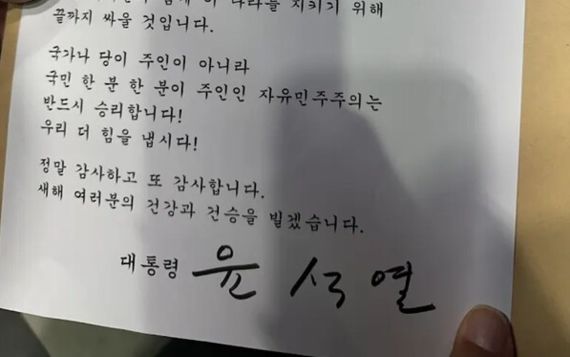 이 나라를 지키기 위해
끝까지 싸울 것입니다.
국가나 당이 주인이 아니라
국민 한 분 한 분이 주인인 자유민주주의는
반드시 승리합니다!
우리 더 힘을 냅시다!
정말 감사하고 또 감사합니다.
새해 여러분의 건강과 건승을 빌겠습니다.
대통령 윤석열